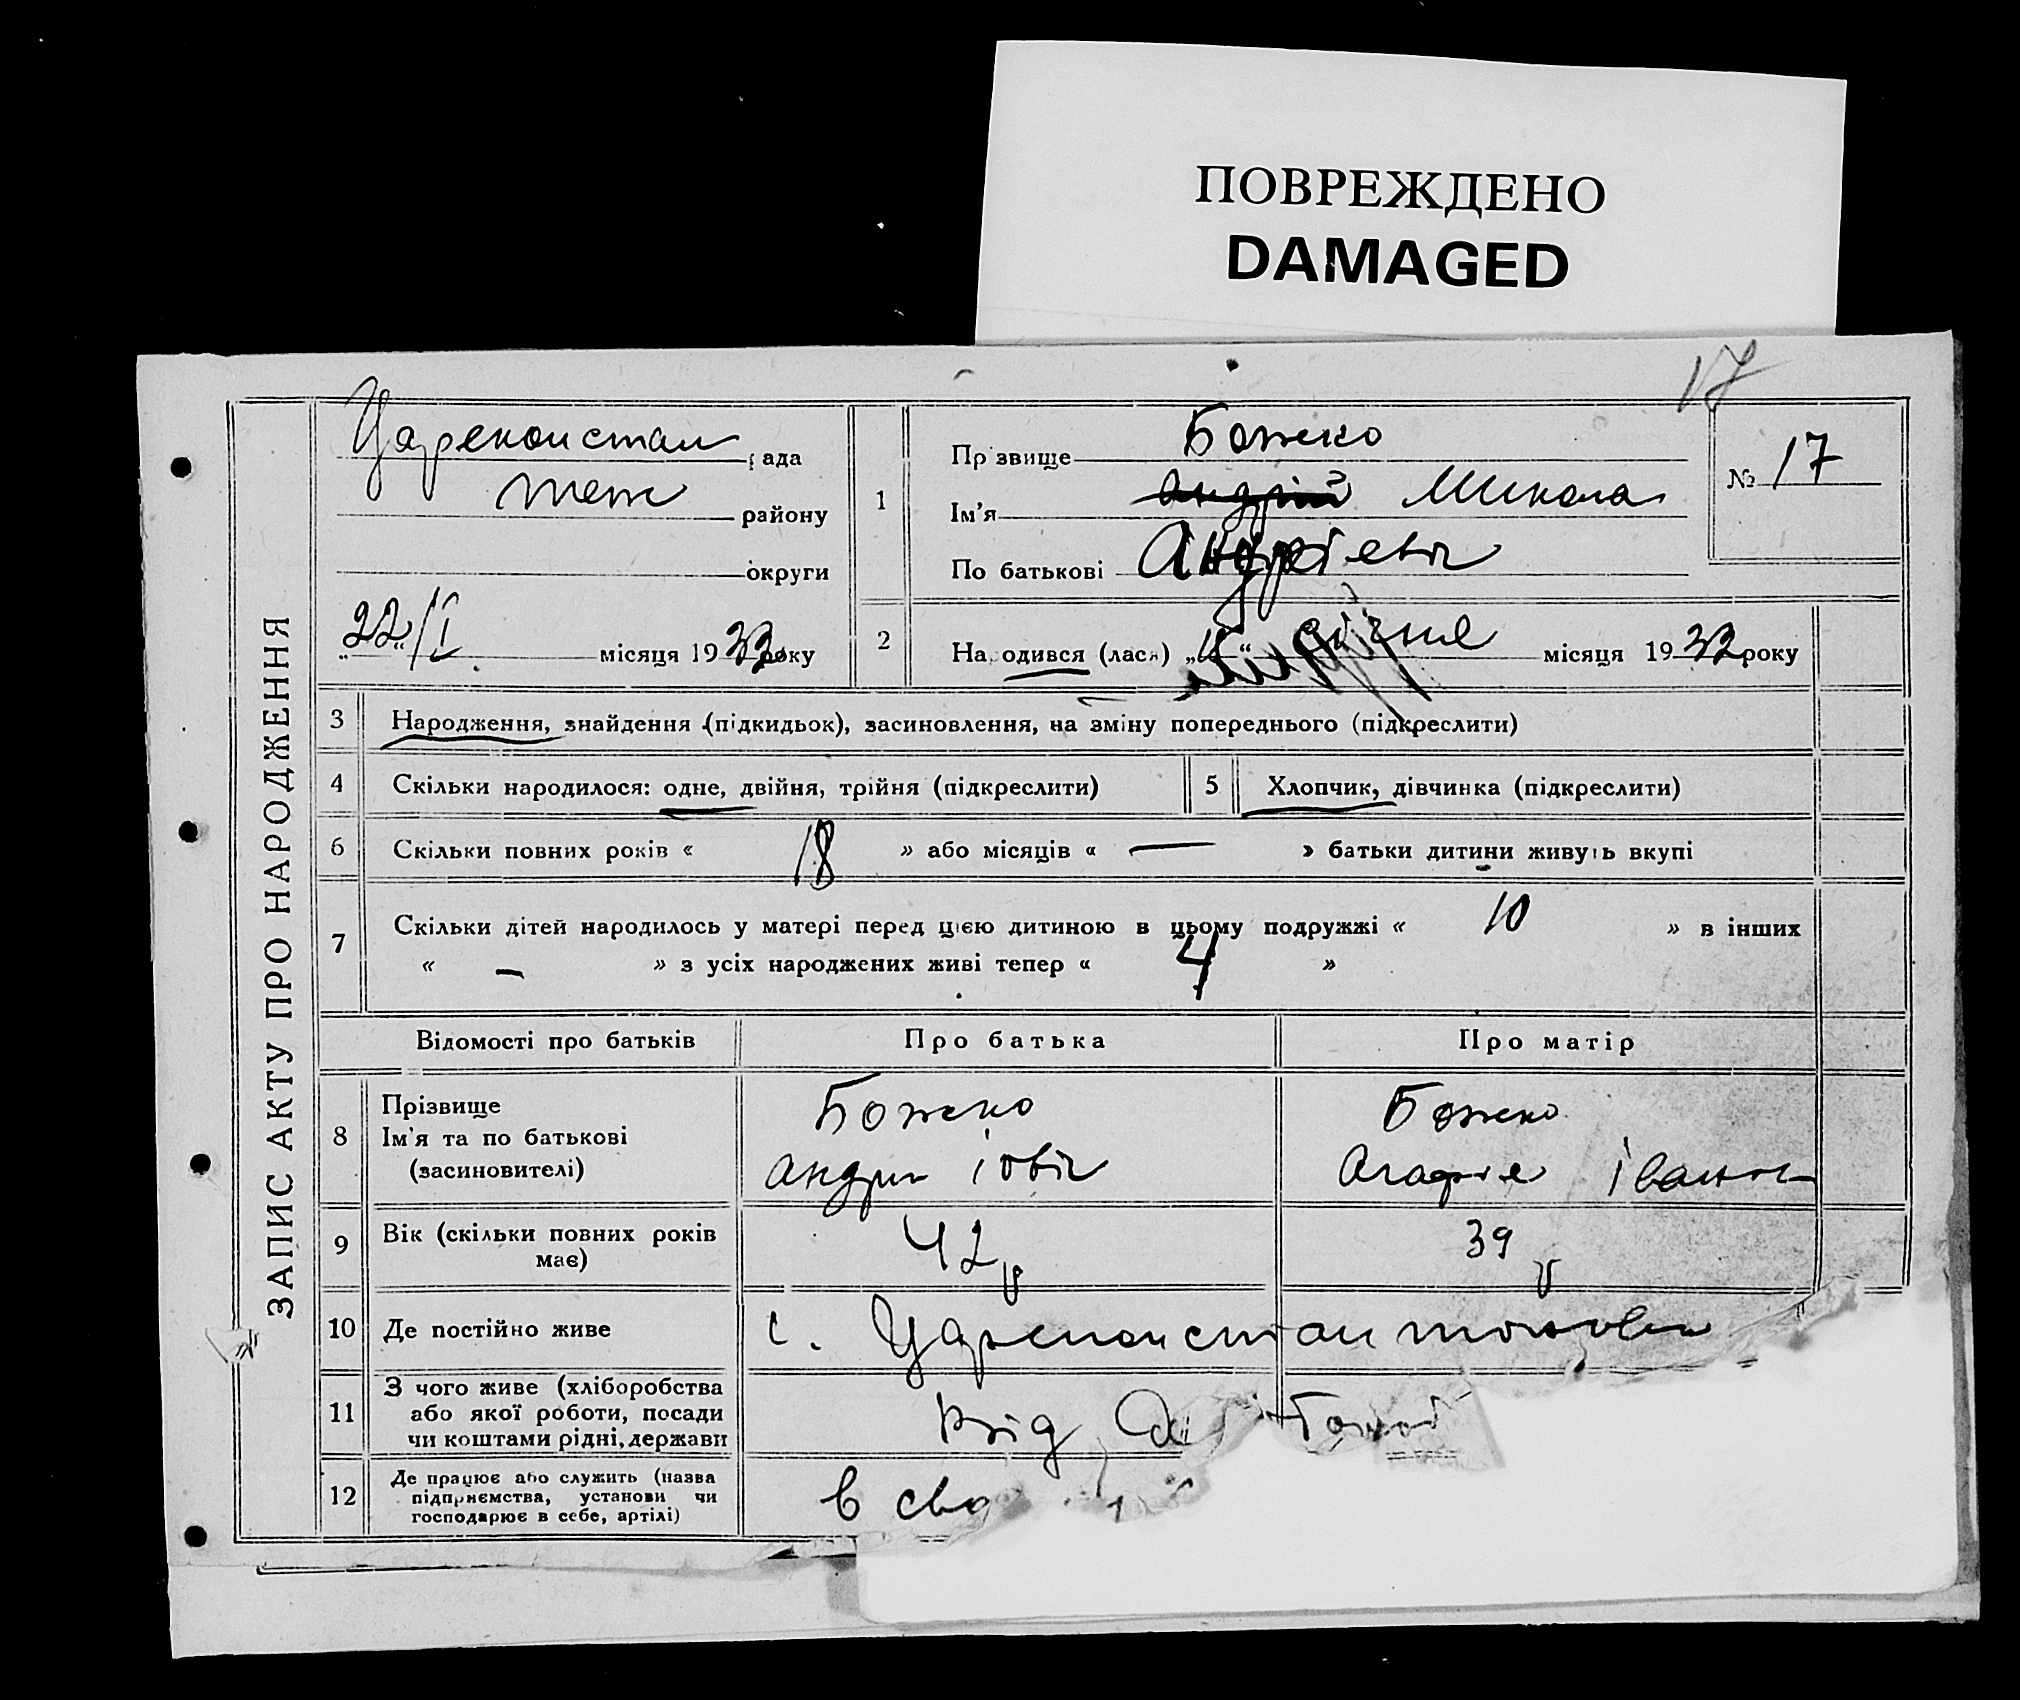 ПОВРЕЖДЕНО
DAMAGED
17
ЗАПИС АКТУ ПРО НАРОДЖЕННЯ
Цареконстан рада
теж району
округи
„22“/I місяця 1933 року
1
Прізвище Божко
Ім'я Андрій Микола
По батькові Андрієвіч
№ 17
2 Народився (лася) січня місяця 1933 року
3 Народження, знайдення (підкидьок), засиновлення, на зміну попереднього (підкреслити)
4 Скільки народилося: одне, двійня, трійня (підкреслити) 5 Хлопчик, дівчинка (підкреслити)
6 Скільки повних років « 18 » або місяців « — » батьки дитини живуть вкупі
7 Скільки дітей народилось у матері перед цією дитиною в цьому подружжі « 10 » в інших
« — » з усіх народжених живі тепер « 4 »
Відомості про батьків Про батька Про матір
8 Прізвище Божко Божко
Ім'я та по батькові
(засиновителі) Андрій Іовіч Агафія Іванов
9 Вік (скільки повних років має) 42 р 39 р
10 Де постійно живе с. Цареконстантоновка
11 З чого живе (хліборобства
або якої роботи, посади
чи коштами рідні, держави від
12 Де працює або служить (назва
підприємства, установи чи
господарює в себе, артілі) в сво